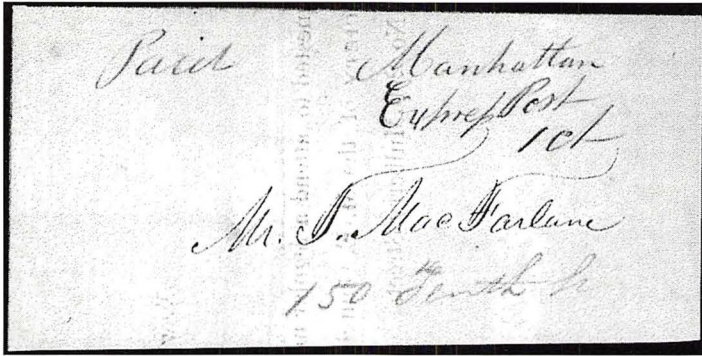 Paid Manhattan
Express Post
1 ct
Mr. T. MacFarlane
150 Tenth